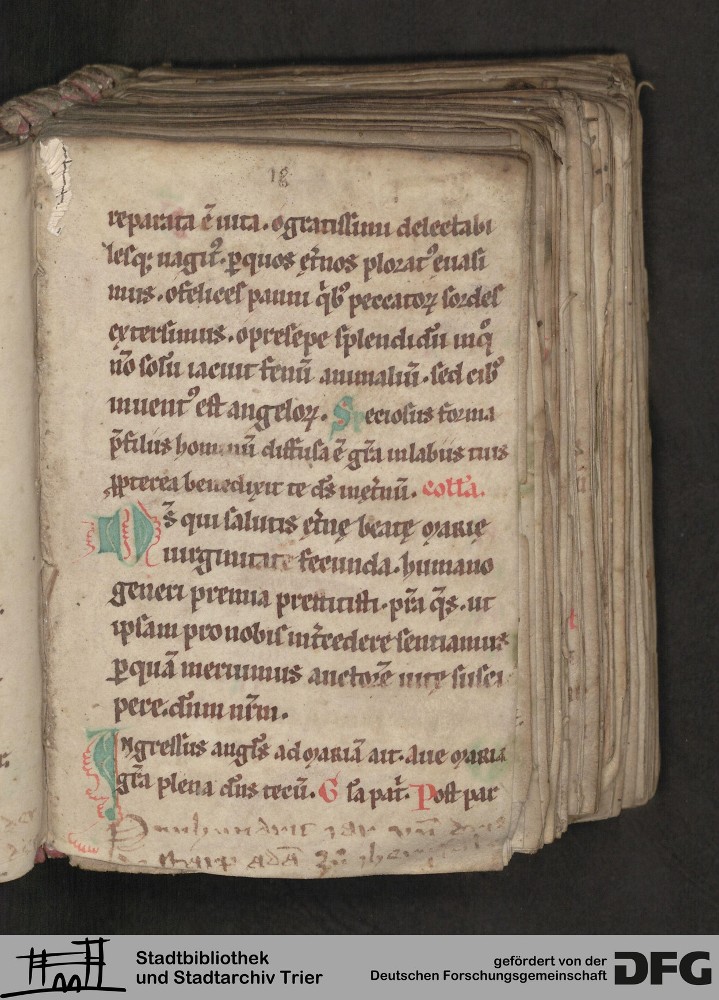 18
reparata ē uita. o gratissimi delectabi
lesq; uagitꝰ. ꝑ quos et̄nos ploratꝰ euasi
mus. o felices panni q̄bꝰ peccatoꝝ sordes
extersimus. o presepe splendidū in q̊
nō solū iacuit fenū animaliū. sed cibꝰ
inuentꝰ est angeloꝝ. Speciosus forma
p̄ filiis hominū diffusa ē gr̄a in labiis tuis
ꝓpterea benedixit te ds̄ in et̄nū. coll̄a.
Ds̄ qui salutis et̄nę beatę marię
uirginitate fecunda. humano
generi premia prestitisti. pr̄a q̄s. ut
ipsam pro nobis int̄cedere sentiamus
ꝑ quā meruimus auctorē uitę susci
pere. dn̄m nr̄m.
Ingressus angl̄s ad mariā ait. Aue maria
gr̄a plena dn̄s tecū. G la pat̄. Post par
Stadtbibliothek
und Stadtarchiv Trier
gefördert von der
Deutschen Forschungsgemeinschaft
DFG